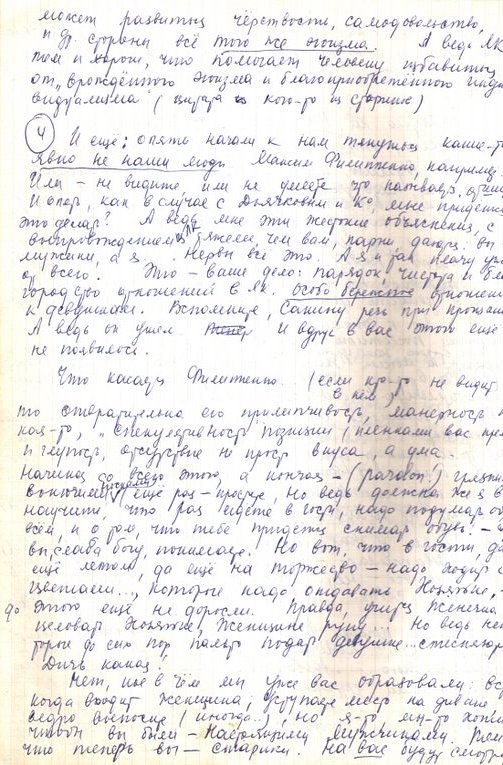 может развиться чёрствость, самодовольство,
и др. стороны всё того же эгоизма. А ведь ЛК
тем и хорош, что помогает человеку избавиться
от „врождённого эгоизма и благоприобретённого инди
видуализма" (цитата из кого-то из стариков)
4 И ещё: опять начали к нам тянуться какие-т
явно не наши люди. Максим Филипенко, например.
Или – не видите, или не умеете
И опять, как в случае с Дьячковым и К°, мне придётся
это делать? А ведь мне эти жестокие объяснения, с
выпровождением из ЛК тяжелее, чем вам, парни дающ: вы
мужчины, а я . Нервы всё это. А я и так плачу
от всего. Это – ваше дело: порядок, чистота и бла
городство отношений в ЛК. Особо бережное отношение
к девушкам. Вспомните, Санину речь при прощании
А ведь он ушел И вдруг в вас этого ещё
не появилось.
Что касается Филипенко. (если кто-то не видит
в нём)
то отвратительна его прилипчивость, манерность
кая-то, „спекулятивность позиции (пленками вас
и глупость, отсутствие не просто вкуса, а ума.
начиная со всего этого, а кончая – (pardon!) грязными
вонючими носками (ещё раз – простите, но ведь должна же я в
научить, что раз идёте в гости, надо подумать об
всём, и о том, что тебе придётся снимать обувь. –
вы, слава богу, понимаете. Но вот, что в гости, да
ещё летом, да ещё на торжество – надо ходить с
цветами.., которые надо отдавать Хозяйке, –
до этого ещё не доросли. Правда, учитесь Женечка
целовать Хозяйке, Женщине руку... Но ведь не
торые до сих пор пальто подать девушке... стесняют
Дичь какая!
Нет, кое в чём мы уже вас образовали: вс
когда входит женщина, уступаете место на диване
ведро выносите (иногда..), но я-то, мы-то хотим
чтобы вы были – Настоящими Мужчинами.
что теперь вы – старики. На вас будут смотре